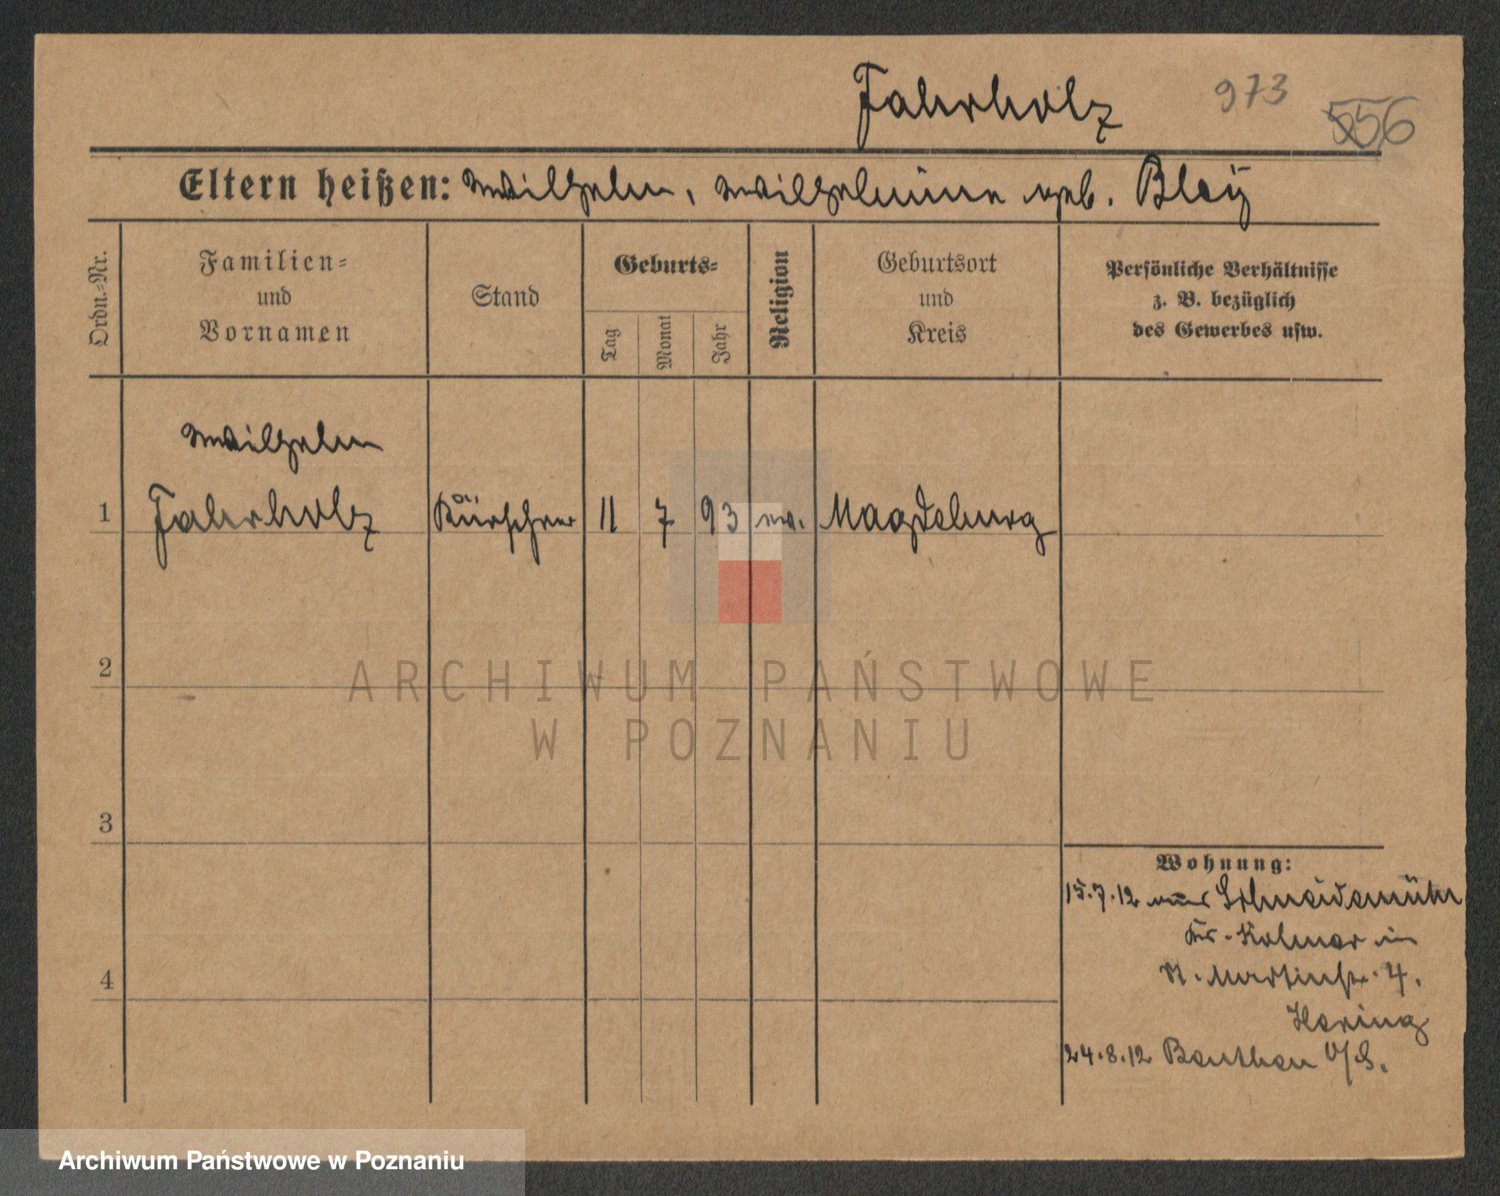 Fahrholz 973 556
Eltern heißen: Wilhelm, Wilhelmine geb. Bley
Ordn.-Nr.
Familien-
und
Vornamen
Stand
Geburts-
Tag
Monat
Jahr
Religion
Geburtsort
und
Kreis
Persönliche Verhältnisse
z. B. bezüglich
des Gewerbes usw.
Wilhelm
1 Fahrholz Kürschner 11 7 93 ev. Magdeburg
2
ARCHIWUM PAŃSTWOWE
W POZNANIU
3
4
Wohnung:
15.7.12 aus Schneidemühl
Kr. Kolmar in
St. Martinstr. 4.
Hering
24.8.12 Beuthen O/S.
Archiwum Państwowe w Poznaniu